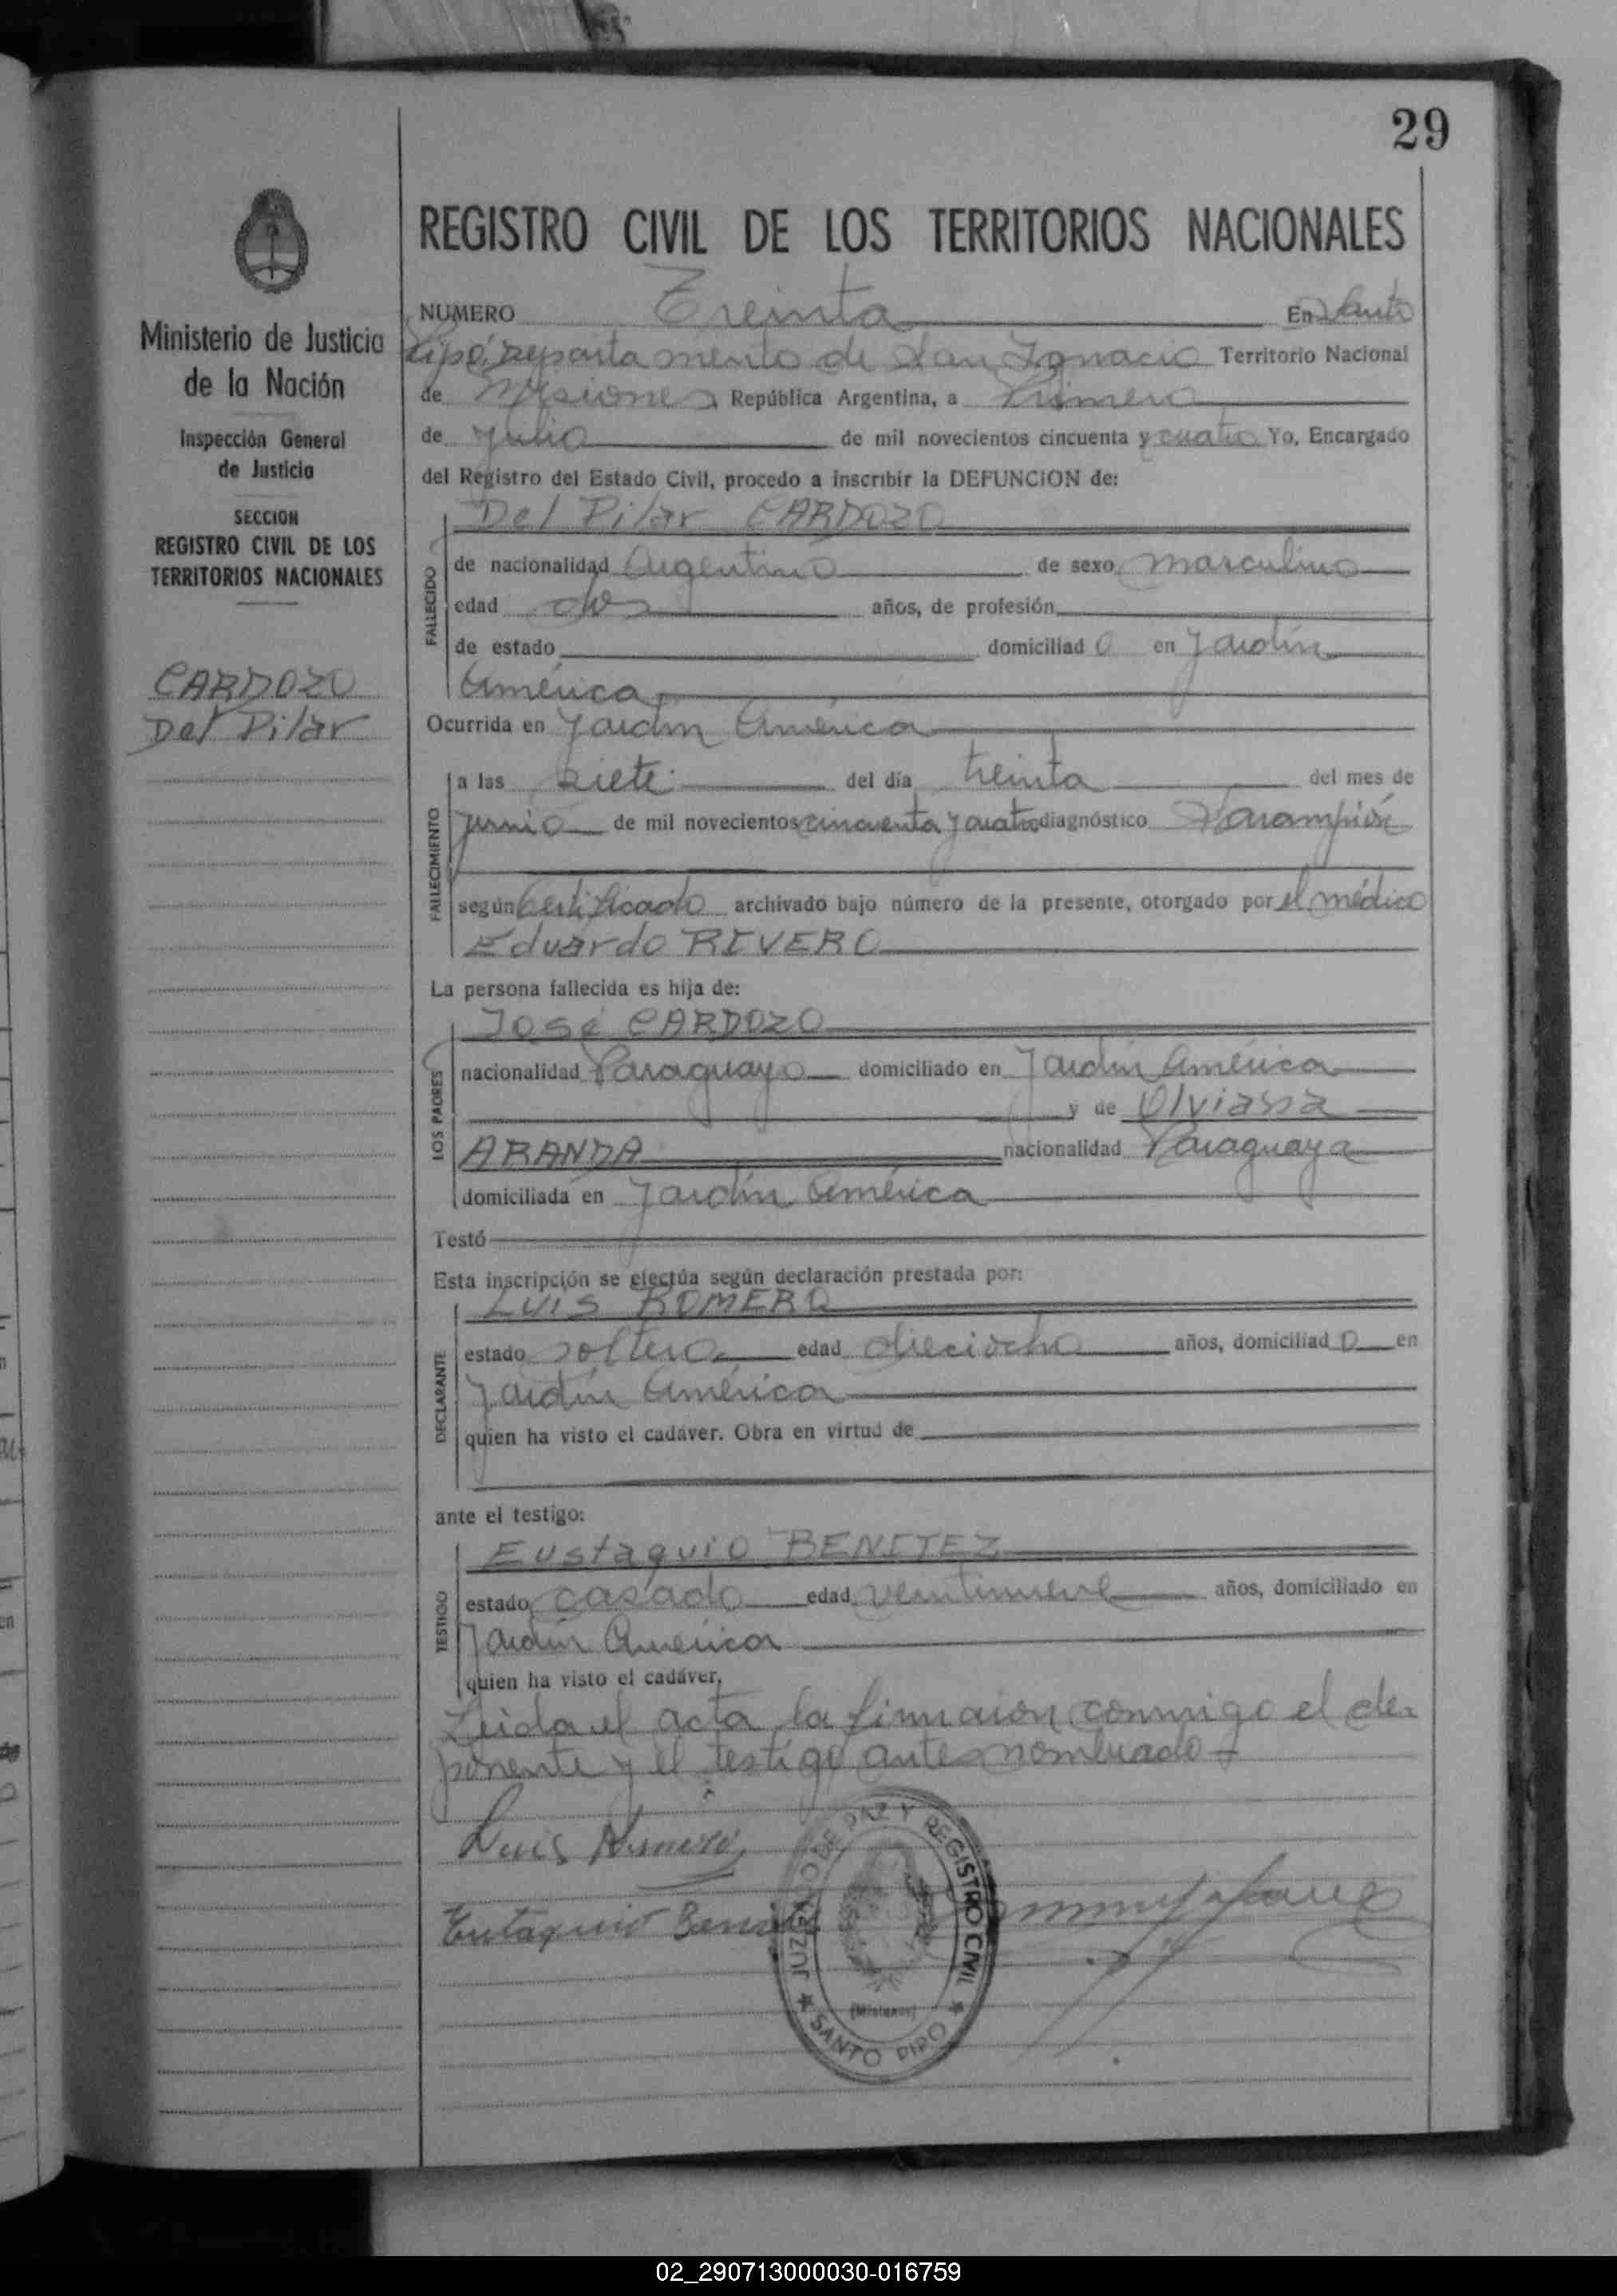 29
Ministerio de Justicia
de la Nación
Inspección General
de Justicia
SECCION
REGISTRO CIVIL DE LOS
TERRITORIOS NACIONALES
CARDOZO
Del Pilar
REGISTRO CIVIL DE LOS TERRITORIOS NACIONALES
NUMERO Treinta En Santo
Pipó, Departamento de San Ignacio Territorio Nacional
de Misiones República Argentina, a Primero
de Julio de mil novecientos cincuenta y cuatro Yo, Encargado
del Registro del Estado Civil, procedo a inscribir la DEFUNCION de:
Del Pilar CARDOZO
FALLECIDO
de nacionalidad Argentino de sexo masculino
edad dos años, de profesión
de estado domiciliad o en Jardín
América
Ocurrida en Jardín América
FALLECIMIENTO
a las siete del día treinta del mes de
junio de mil novecientos cincuenta y cuatro diagnóstico Sarampión
según Certificado archivado bajo número de la presente, otorgado por el médico
Eduardo RIVERO
La persona fallecida es hija de:
José CARDOZO
LOS PADRES
nacionalidad Paraguayo domiciliado en Jardín América
y de Olviasia
ARANDA nacionalidad Paraguaya
domiciliada en Jardín América
Testó
Esta inscripción se efectúa según declaración prestada por:
LUIS ROMERO
DECLARANTE
estado soltero edad dieciocho años, domiciliad o en
Jardín América
quien ha visto el cadáver. Obra en virtud de
ante el testigo:
Eustaquio BENITEZ
TESTIGO
estado casado edad veintinueve años, domiciliado en
Jardín América
quien ha visto el cadáver.
Leida el acta la firmaron conmigo el de-
ponente y el testigo antes nombrado
Luis Romero
Eutaquio Benitez
JUZGADO DE PAZ Y REGISTRO CIVIL
(Misiones)
SANTO PIPO
02_290713000030-016759